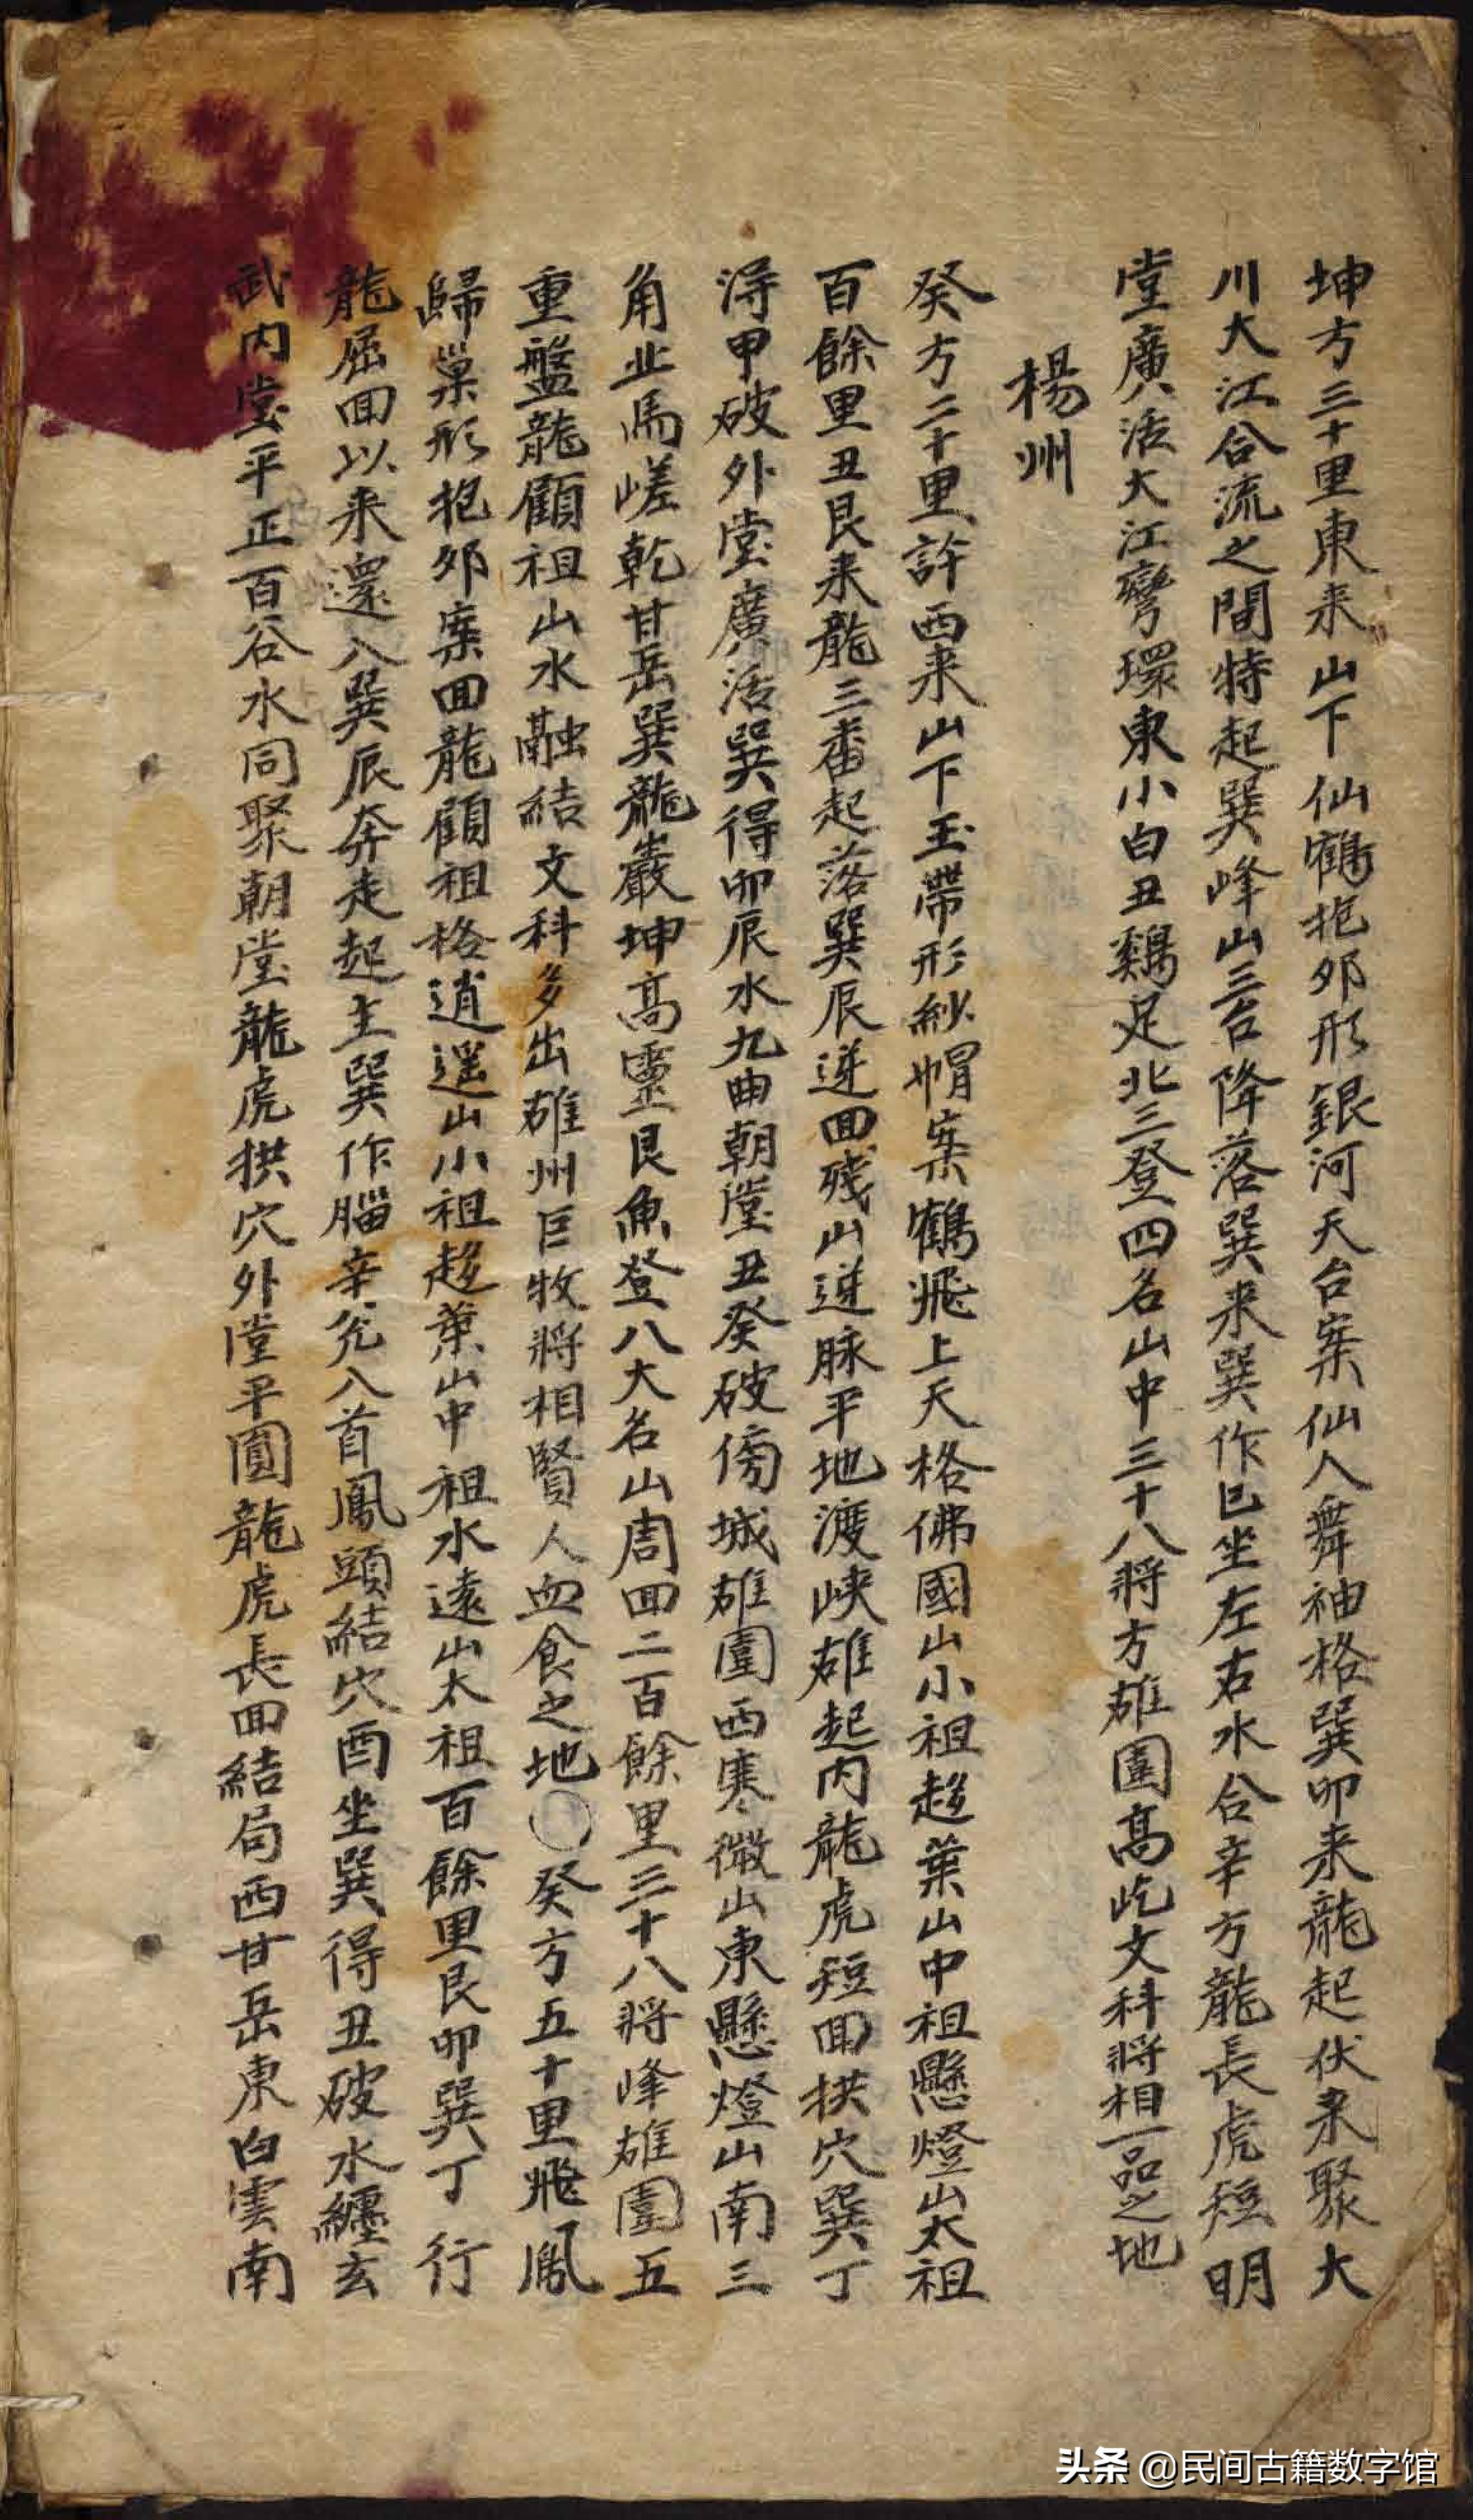 坤方三十里東来山下仙鶴抱卵形銀河天台案仙人舞袖格巽卯来龍起伏来聚大
川大江合流之間特起巽峰山三台降落巽来巽作巳坐左右水合辛方龍長虎短明
堂廣活大江彎環東小白丑鷄足北三登四名山中三十八将方雄圍高屹文科将相一品之地
楊州
癸方二十里許西来山下玉帶形紗帽案鶴飛上天格佛國山小祖趍葉山中祖懸燈山太祖
百餘里丑艮来龍三番起落巽辰逆回殘山逆脉平地渡峡雄起内龍虎短回拱穴巽丁
淂甲破外堂廣活巽得卯辰水九曲朝堂丑癸破傍城雄圍西寒微山東懸燈山南三
角北馬嵯乾甘岳巽龍巖坤高靈艮魚登八大名山周回二百餘里三十八將峰雄圍五
重盤龍顧祖山水融結文科多出雄州巨牧將相賢人血食之地○癸方五十里飛鳳
歸巢形抱卵案回龍顧祖格逍遥山小祖趍葉山中祖水遠山太祖百餘里艮卯巽丁行
龍屈回以来還入巽辰奔走起主巽作腦辛兊八首鳳頭結穴酉坐巽得丑破水纒玄
武内堂平正百谷水同聚朝堂龍虎拱穴外堂平圓龍虎長回結局西甘岳東白雲南
头条 @民间古籍数字馆